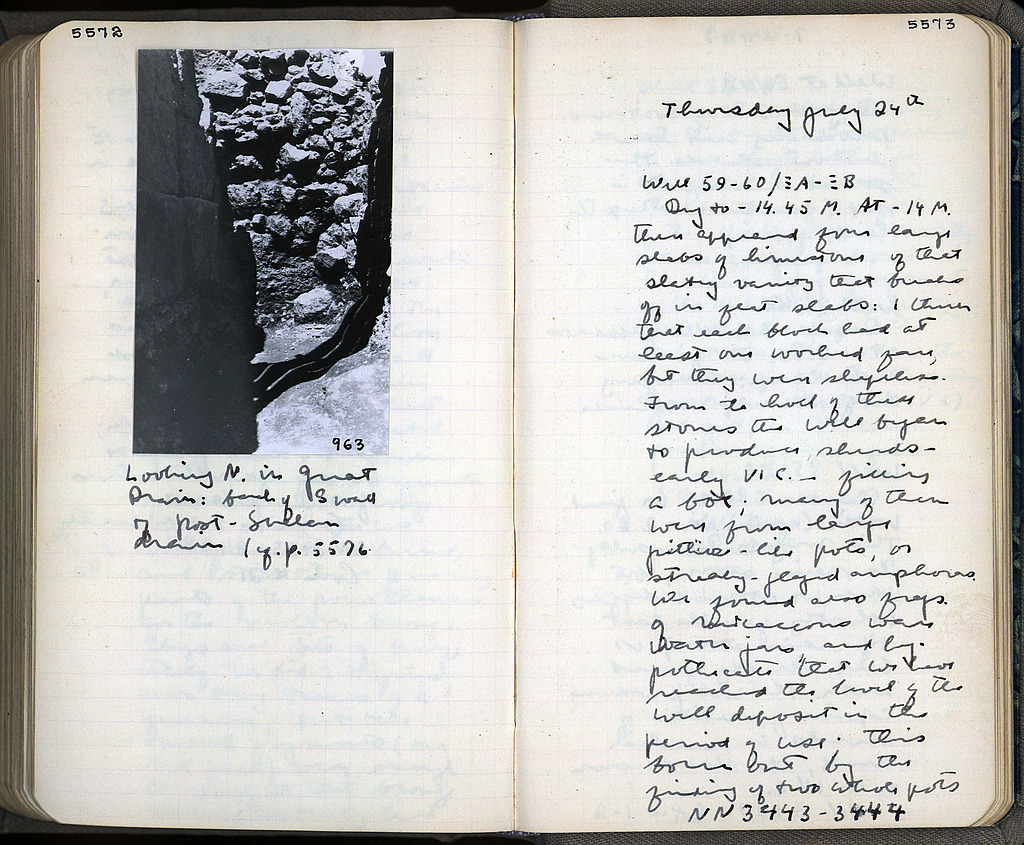 5572
963
Looking N. in Great
Drain: back of S wall
of post-Sullan
drain / cf. p. 5576
5573
Thursday July 24th
Well 59-60/ΞA-ΞB
Dug to -14.45 M. AT -14 M.
there appeared four large
slabs of limestone of that
slatey variety that breaks
off in flat slabs: I think
that each block had at
least one worked face,
but they were shapeless.
From the level of these
stones the well began
to produce sherds-
early VI C. - filling
a box; many of them
were from large
pithos-like pots, or
streaky-glazed amphoras.
We found also frags.
of micaceous ware
water jars and hy-
pothecate that we have
reached the level of the
well deposit in the
period of use. this
borne out by the
finding of two whole pots
NN 3443-3444